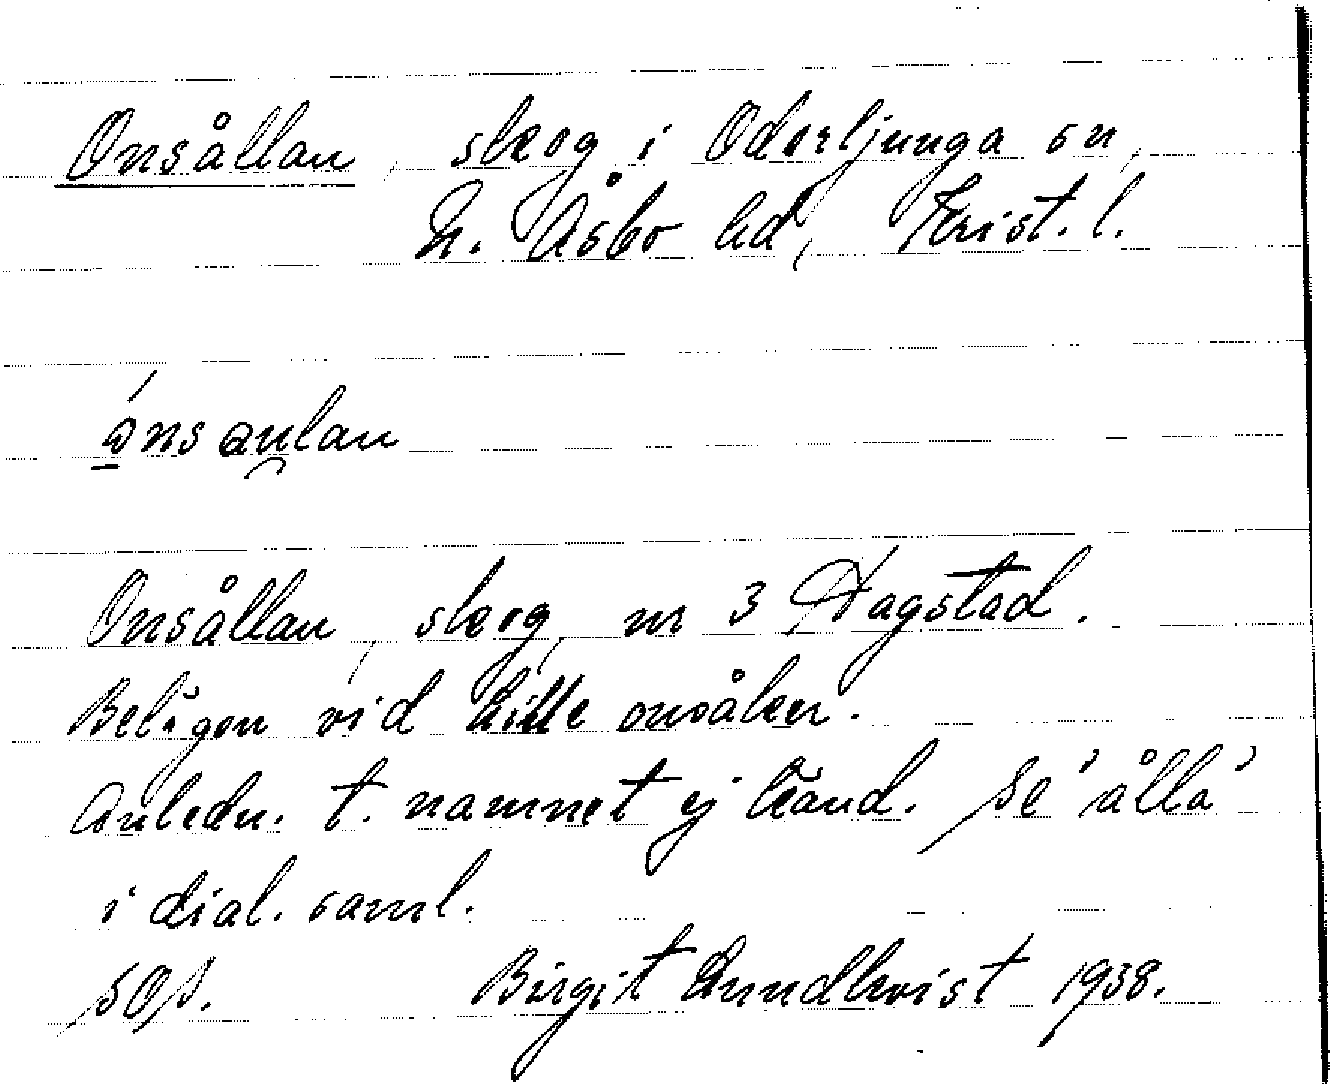 Onsållan, skog i Oderljunga sn,
N. Åsbo hd, Krist. l.
ónsaulan
Onsållan, skog, nr 3 Dagstad.
Belägen vid Lille onsåker.
Anledn. t. namnet ej känd. Se 'ålla'
i dial. saml.
SOS. Birgit Lundkvist 1938.